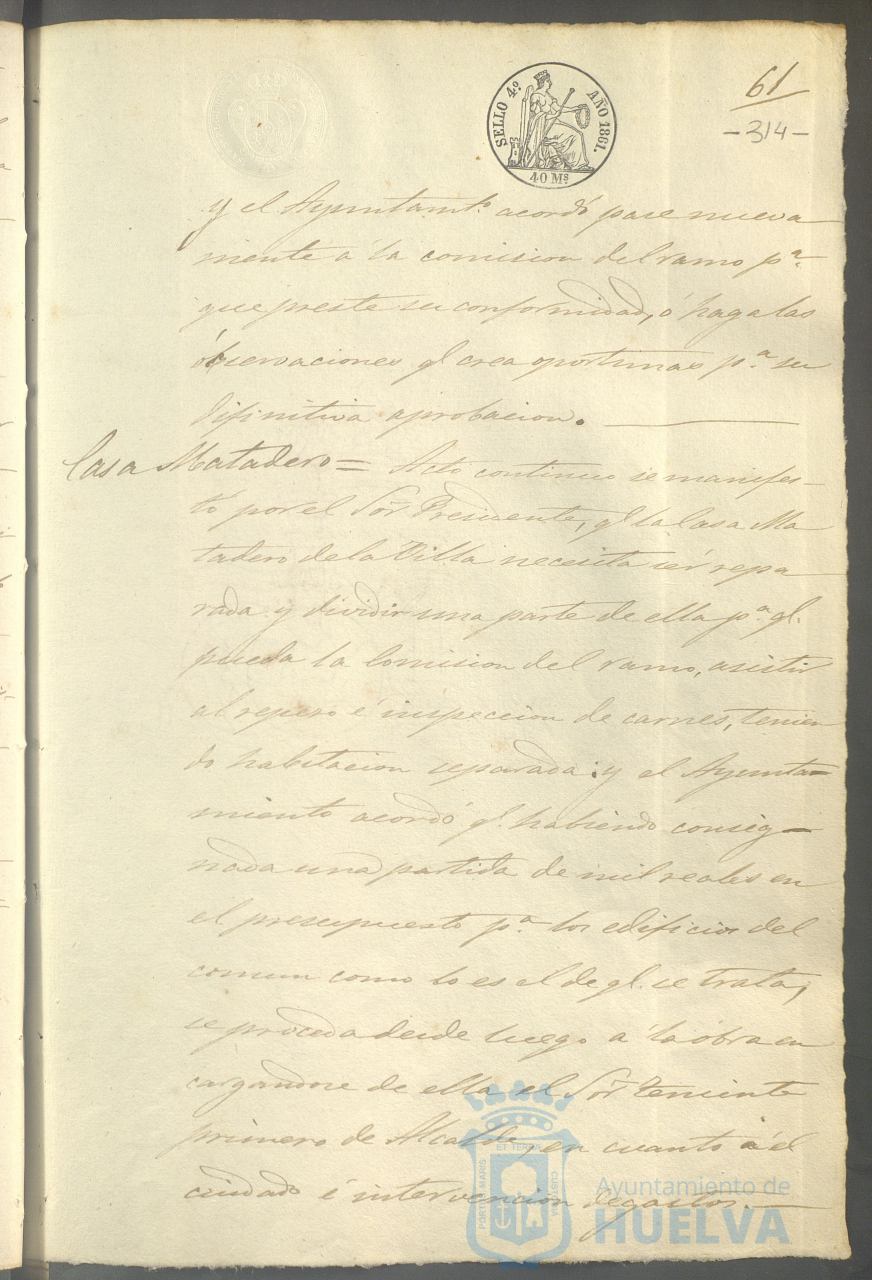 SELLO 4º AÑO 1861.
40 Mˢ
61
-314-
y el Ayuntamtº acordó pase nueva
mente á la comision del ramo pª
que preste su conformidad, ó haga las
observaciones ql crea oportunas pª su
difinitiva aprobacion.
Casa Matadero = Acto continuo se manifes-
tó por el Sôr Presidente, ql la Casa Ma
tadero de la Villa necesita ser repa
rada y dividir una parte de ella pª ql.
pueda la Comision del ramo, asistir
al repeso é inspeccion de carnes, tenien
do habitacion separada: y el Ayunta=
miento acordó ql. habiendo consig=
nada una partida de mil reales en
el presupuesto pª los edificios del
comun como lo es el de ql. se trata,
se proceda desde luego á la obra en
cargandose de ella el Sôr Teniente
primero de Alcalde, en cuanto á el
cuidado é intervencion de gastos.
PORTUS MARIS ET TERRAE CUSTODIA
Ayuntamiento de
HUELVA